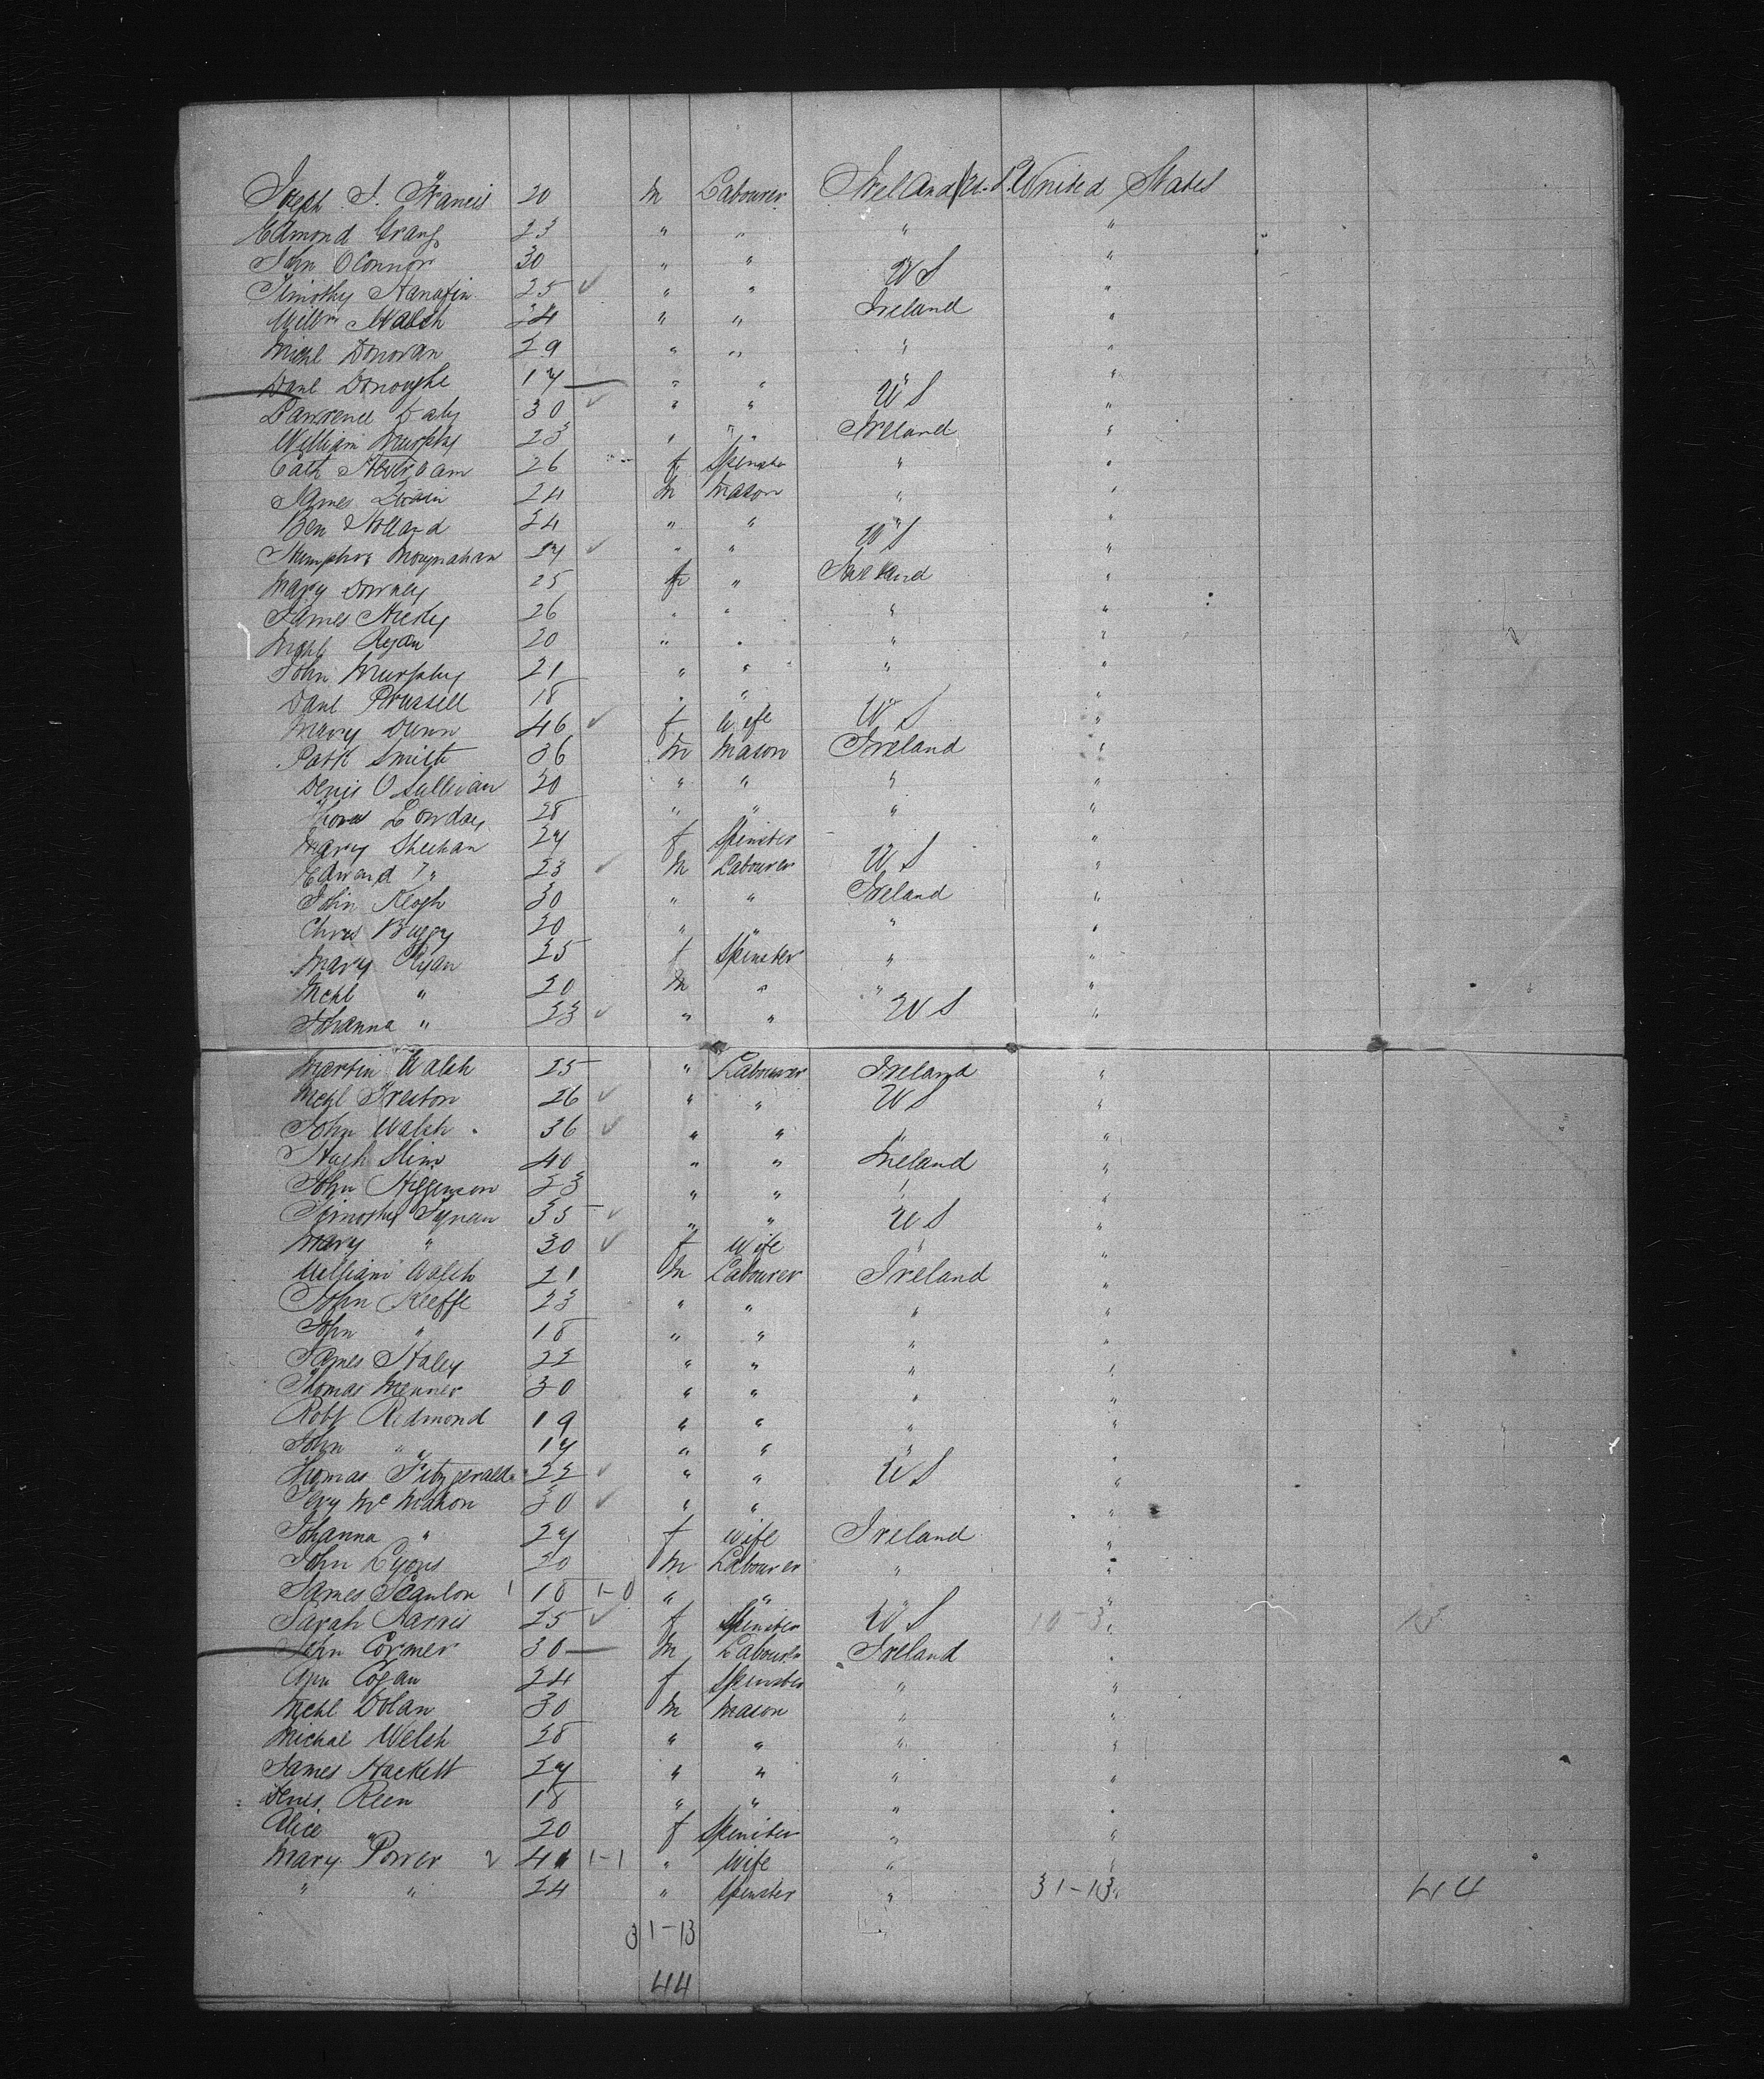 Joseph S. Francis 20 m Labourer Ireland United States
Edmond Grang 23 " " " "
John OConnor 30 " " "
Timothy Hanafin 25 ✓ " " U S "
Willm Walsh 24 " " Ireland "
Michl Donovan 29 " " " "
Danl Donoughe 17 — " " "
Lawrence Daly 30 ✓ " " U S "
William Murphy 23 " " Ireland "
Cath 26 f Spinster " "
James 24 m Mason " "
Ben Holland 24 " " " "
Humphry Moynahan 27 ✓ " " U S "
Mary Downey 25 f " Ireland "
James Hickey 26 " " " "
Michl Ryan 20 " " " "
John Murphy 21 " " " "
Danl Prussell 18 " " "
Mary Dunn 46 ✓ f Wife U S "
Patk Smith 36 m Mason Ireland "
Denis O Sullivan 20 " " " "
Thomas Londay 28 " " " "
Mary Sheehan 27 f Spinster "
Edward " 23 ✓ m Labourer U S "
John Keogh 30 " " Ireland "
Chris Buggy 20 " " " "
Mary Ryan 25 f Spinster " "
Mchl " 20 m " " "
Johanna " 23 ✓ " " U S "
Martin Walsh 25 " Labourer Ireland "
Mchl Preston 26 ✓ " " U S "
John Walsh 36 ✓ " " " "
Hugh Slim 40 " " Ireland "
John Higginson 23 " " " "
Timothy Tynan 35 ✓ " " U S "
Mary " 30 ✓ f Wife " "
William Walsh 21 m Labourer Ireland "
John Keeffe 23 " " " "
John " 18 " " " "
James Haley 22 " " " "
Thomas Menner 30 " " " "
Robt Redmond 19 " " " "
John " 17 " " " "
Thomas Fitzgerald 22 ✓ " " U S "
Mc Mahon 30 ✓ " " "
Johanna " 27 f Wife Ireland "
John Lyons 20 m Labourer " "
James Scanlon 1 18 1-0 " " " "
Sarah Harris 25 ✓ f Spinster U S 10-3 " 13
John Cormer 30 — m Labourer Ireland "
Ann Cogan 24 f Spinster " "
Mchl Dolan 30 m Mason " "
Michal Welsh 28 " " " "
James Hackett 27 " " " "
Denis Reen 18 " " " "
Alice " 20 f Spinster " "
Mary Power 2 41 1-1 " Wife " "
" " 24 " Spinster " 31-13 " 44
31-13
44